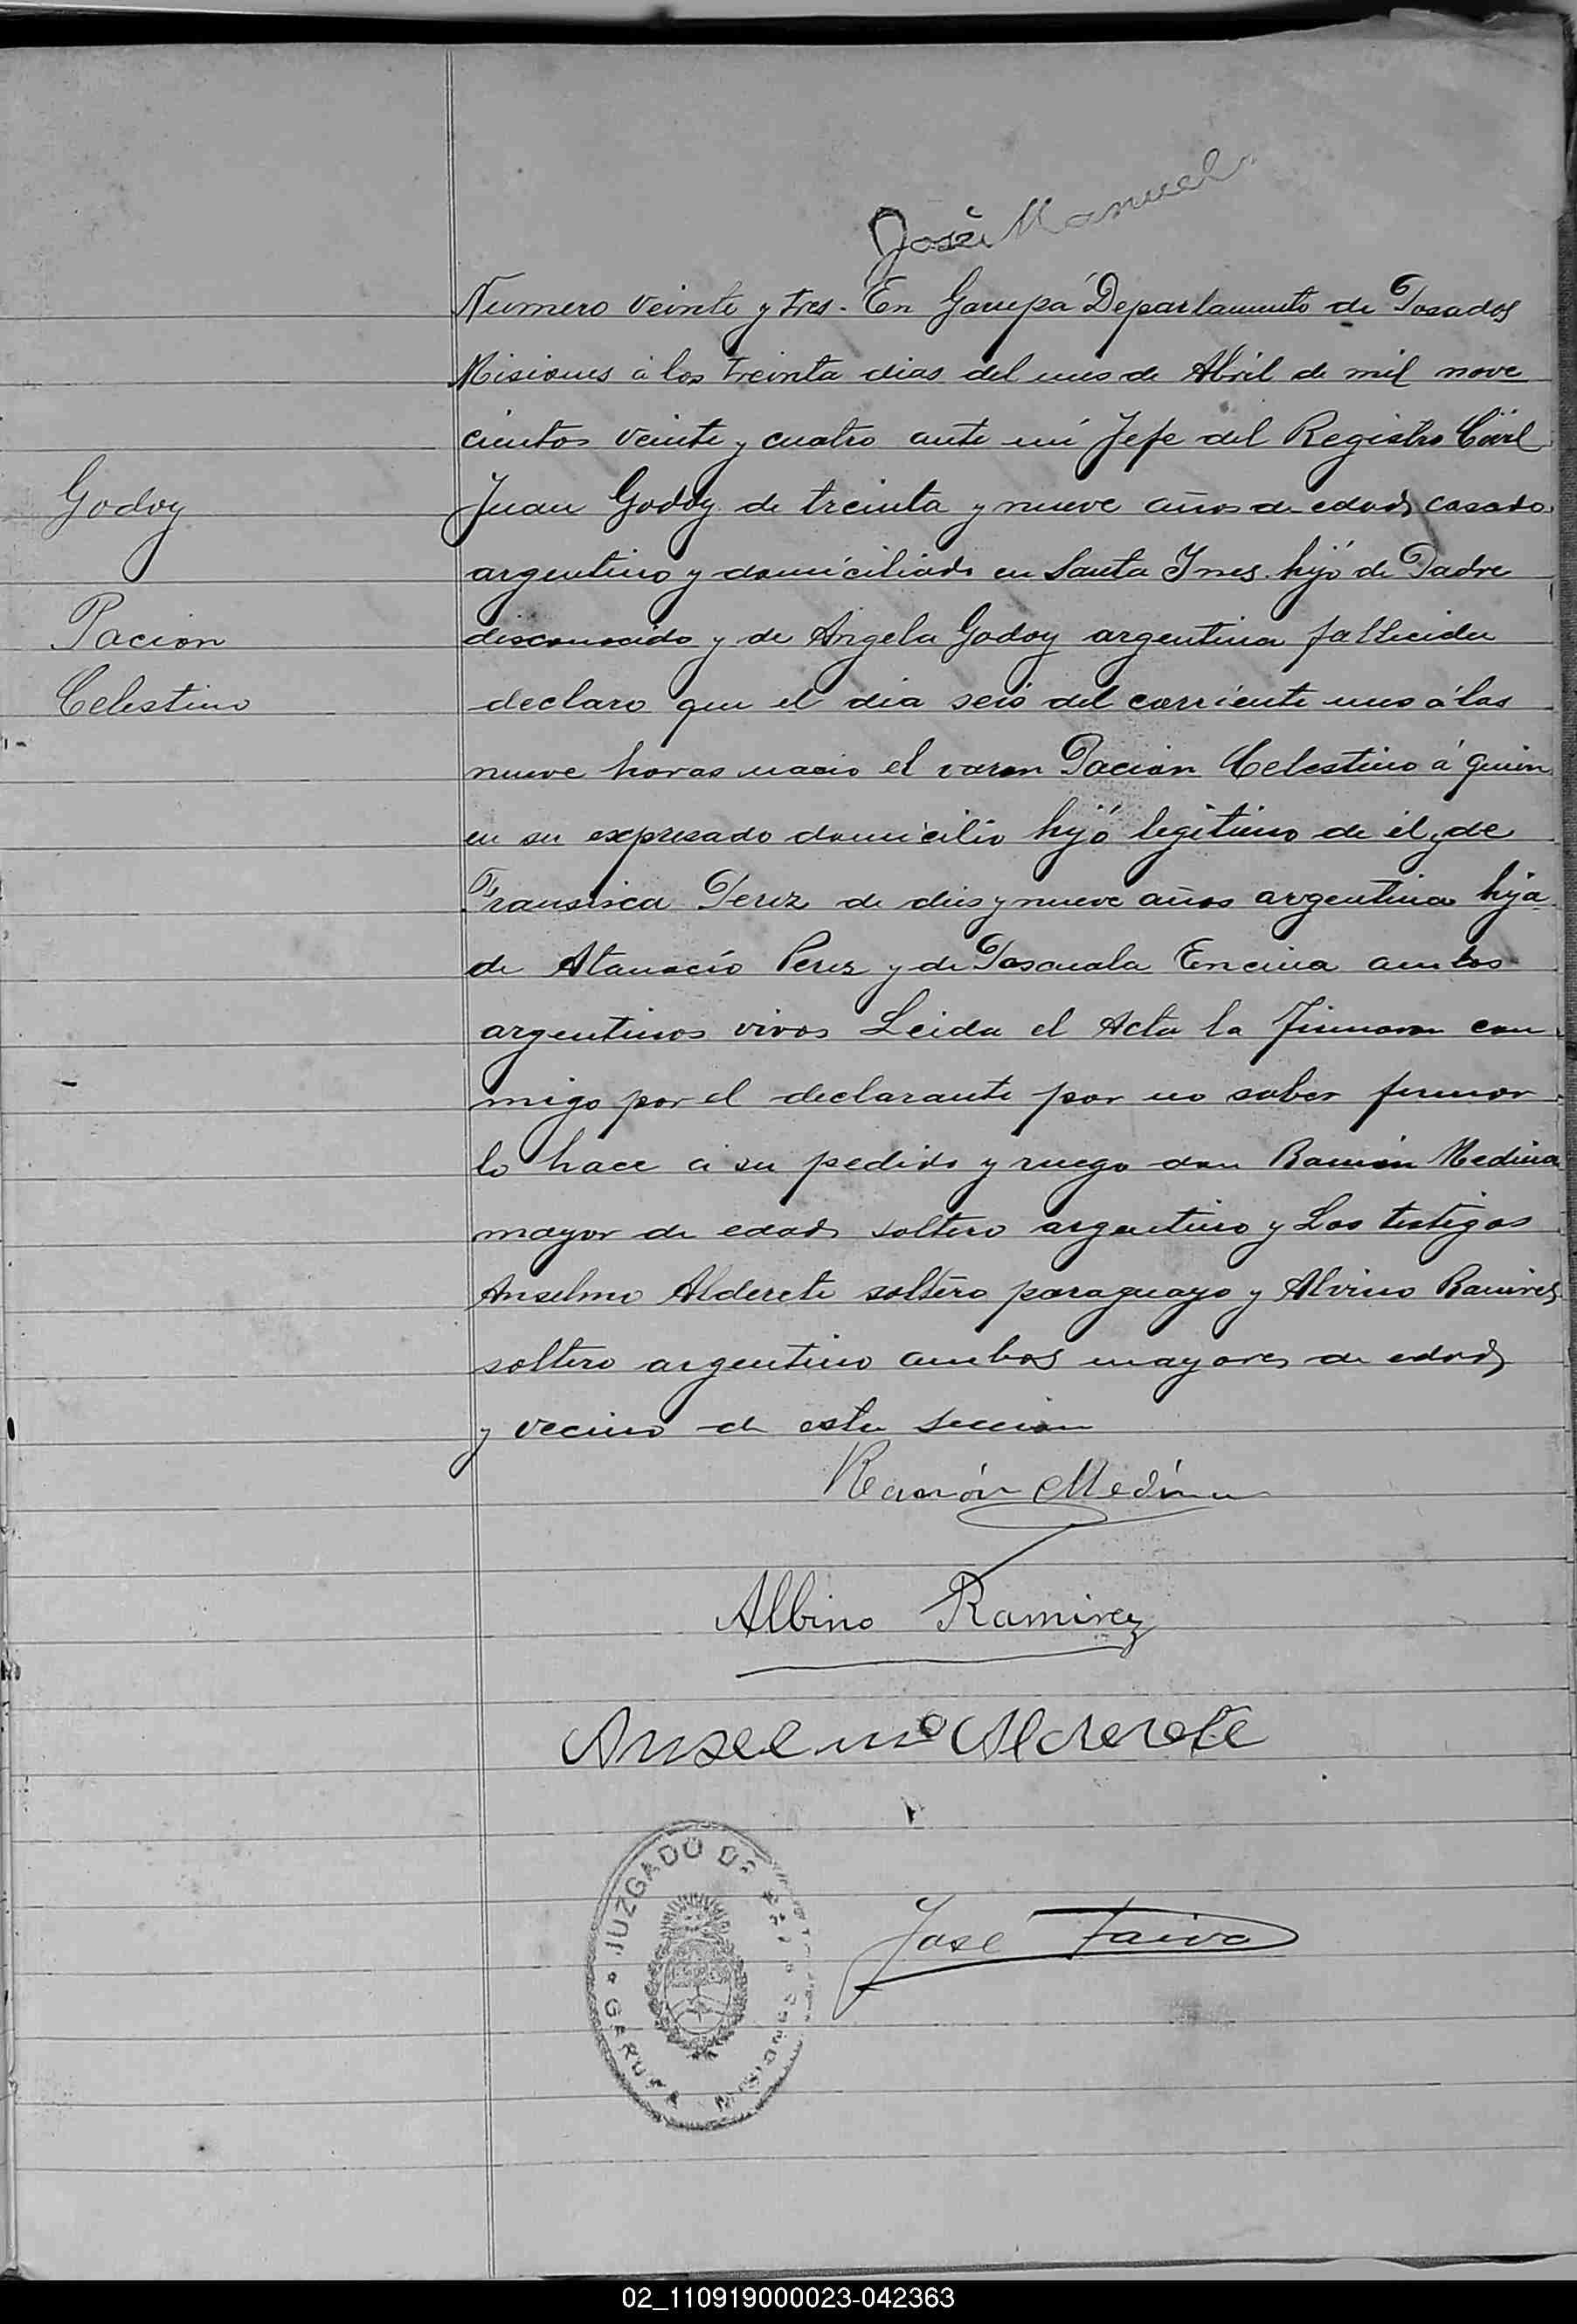 José Manuel
Numero veinte y tres. En Garupá Departamento de Posadas
Misiones á los treinta dias del mes de Abril de mil nove
cientos veinte y cuatro ante mi Jefe del Registro Civil
Godoy
Juan Godoy de treinta y nueve años de edad casado
argentino y domiciliado en Santa Ines hijo de Padre
Pacion
desconocido y de Angela Godoy argentina fallecida
Celestino
declaro que el dia seis del corriente mes á las
nueve horas nacio el varon Pacion Celestino á quien
en su expresado domicilio hijó legitimo de él y de
Fransisca Perez de dies y nueve años argentina hija
de Atanacio Perez y de Pascuala Encina ambos
argentinos vivos Leida el Acta la Firmaron con
migo por el declarante por no saber firmar
lo hace á su pedido y ruego don Ramón Medina
mayor de edad soltero argentino y Los testigos
Anselmo Alderete soltero paraguayo y Alvino Ramires
soltero argentino ambos mayores de edad
y vecino de esta seccion
Ramón Medina
Albino Ramirez
Anselmo Alderete
JUZGADO DE
GARUPA
José Paiva
02_110919000023-042363